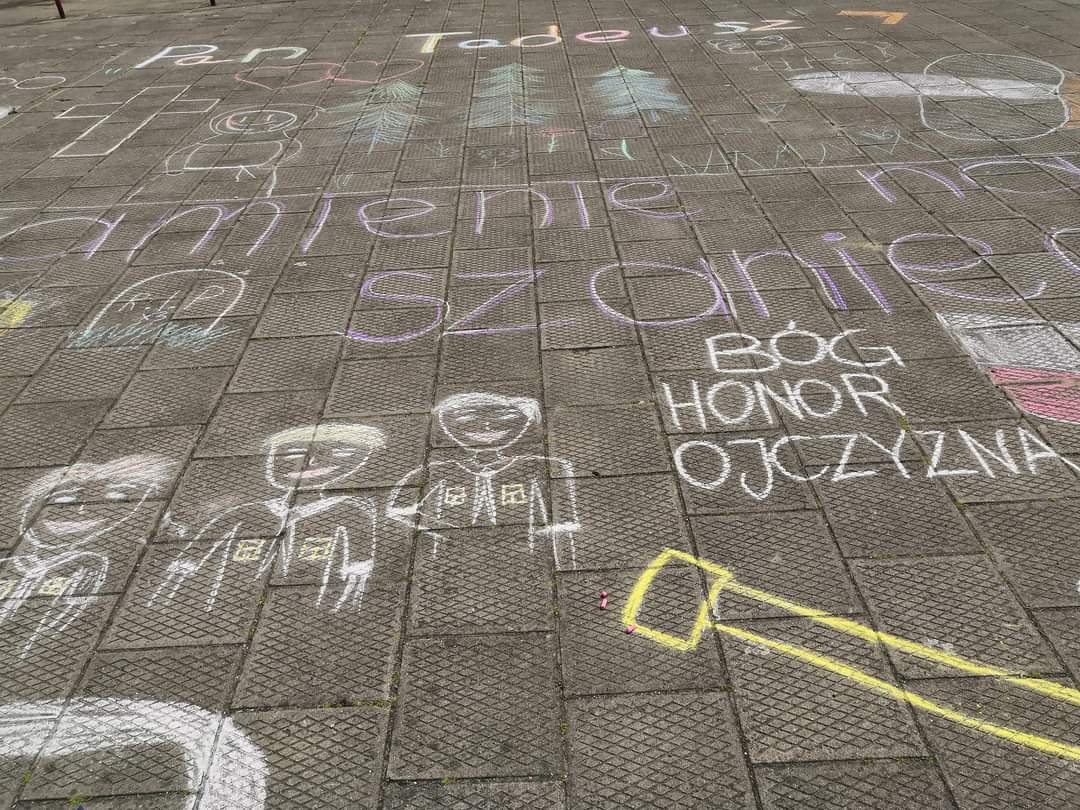 Pan Tadeusz
amienie na
szaniec
R.I.P
BÓG
HONOR
OJCZYZNA